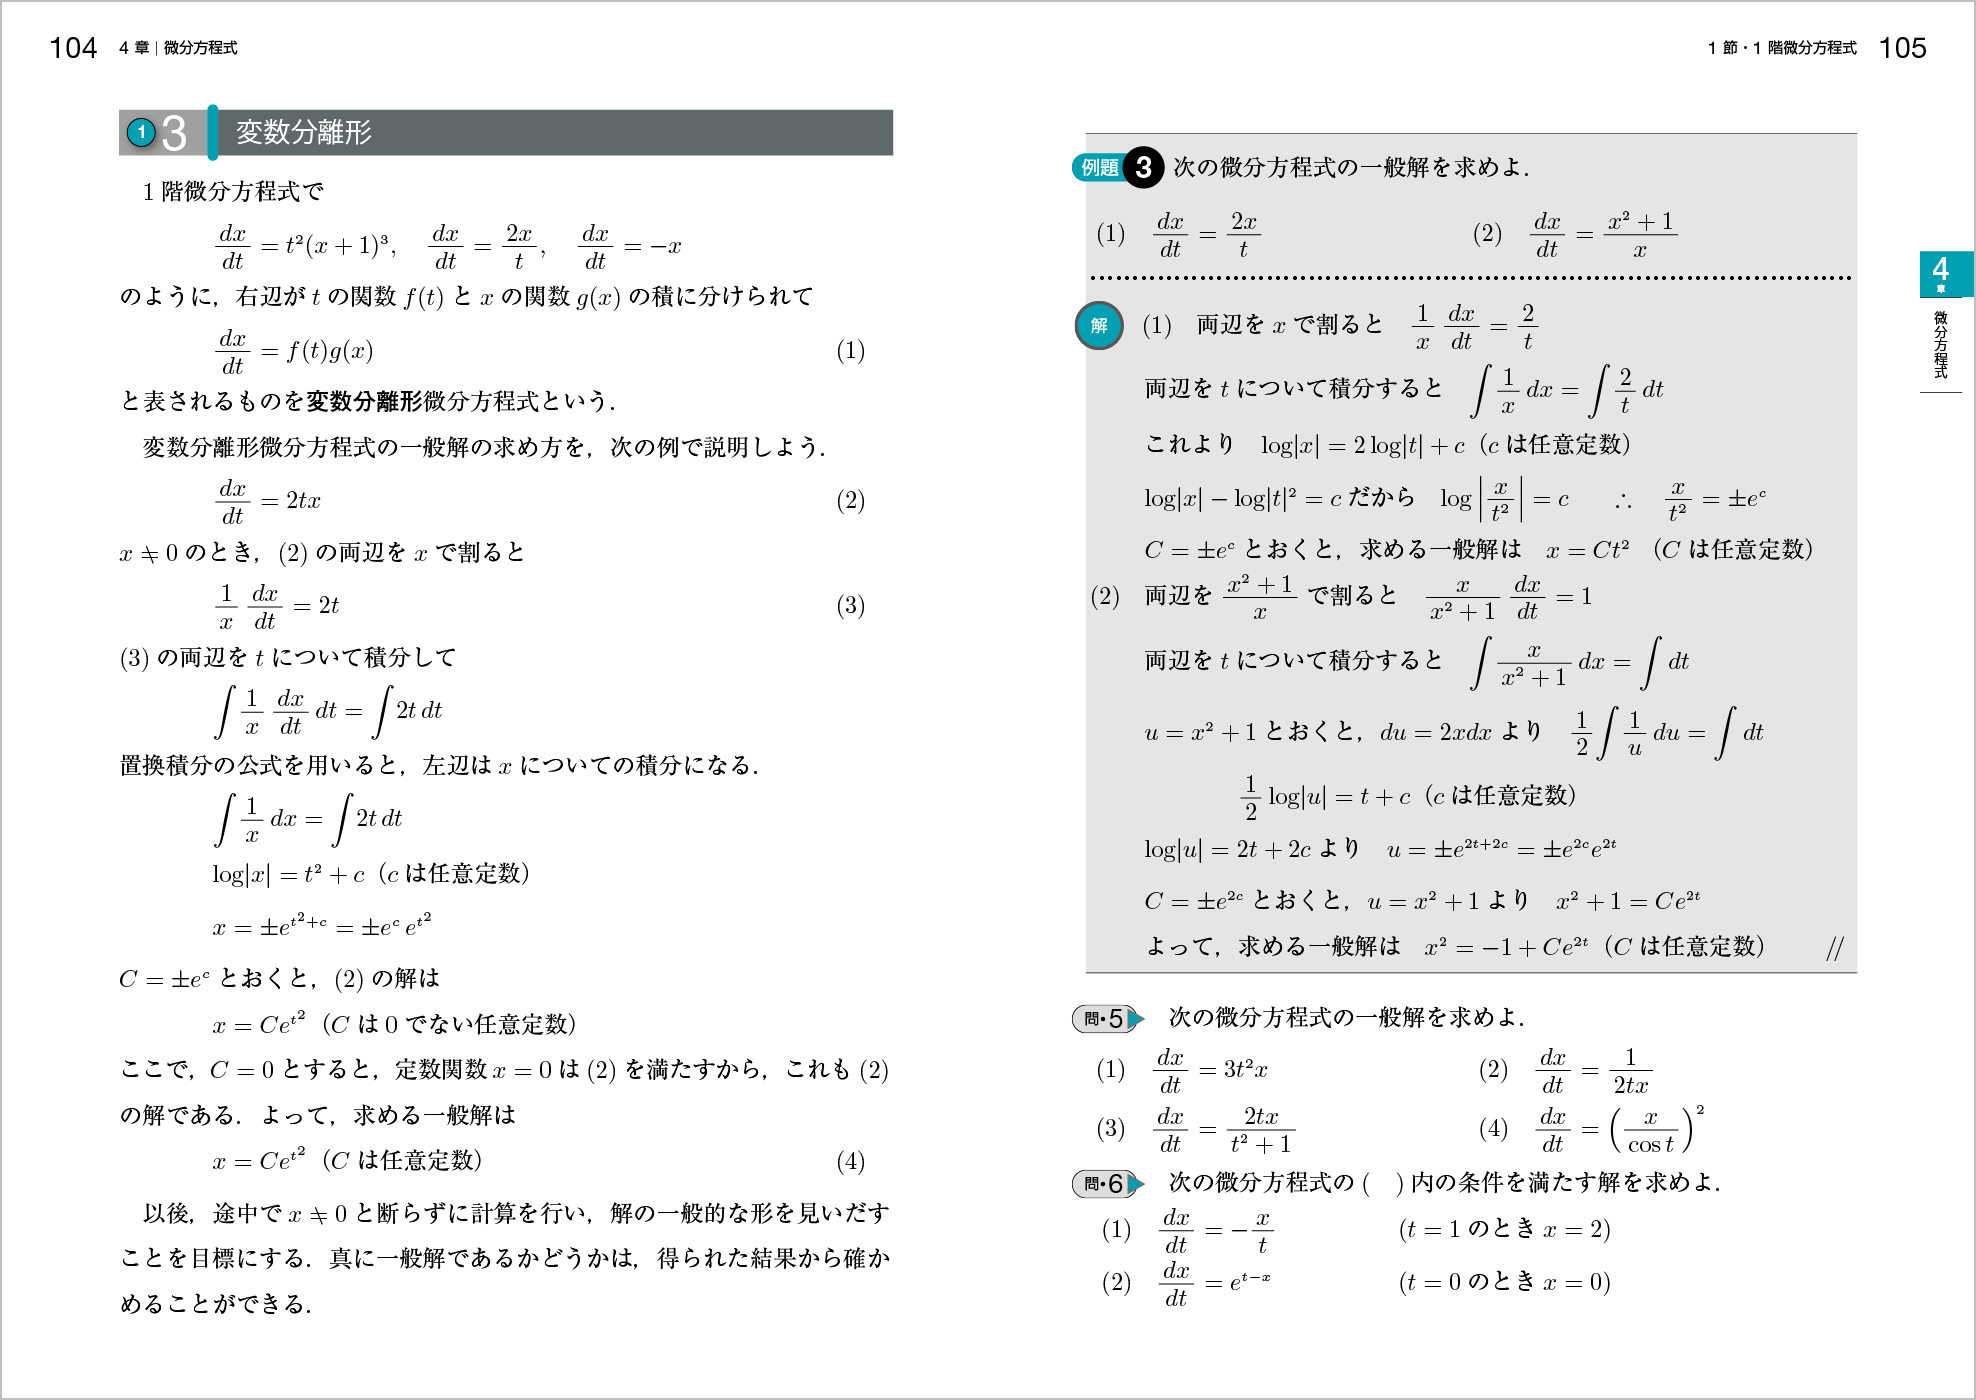 104 4 章｜微分方程式
1 3 変数分離形
1 階微分方程式で
dx/dt = t²(x + 1)³, dx/dt = 2x/t, dx/dt = −x
のように，右辺が t の関数 f(t) と x の関数 g(x) の積に分けられて
dx/dt = f(t)g(x) (1)
と表されるものを変数分離形微分方程式という．
変数分離形微分方程式の一般解の求め方を，次の例で説明しよう．
dx/dt = 2tx (2)
x ≠ 0 のとき，(2) の両辺を x で割ると
1/x dx/dt = 2t (3)
(3) の両辺を t について積分して
∫ 1/x dx/dt dt = ∫ 2t dt
置換積分の公式を用いると，左辺は x についての積分になる．
∫ 1/x dx = ∫ 2t dt
log|x| = t² + c（c は任意定数）
x = ±e^(t²+c) = ±e^c e^(t²)
C = ±e^c とおくと，(2) の解は
x = Ce^(t²)（C は 0 でない任意定数）
ここで，C = 0 とすると，定数関数 x = 0 は (2) を満たすから，これも (2)
の解である．よって，求める一般解は
x = Ce^(t²)（C は任意定数） (4)
以後，途中で x ≠ 0 と断らずに計算を行い，解の一般的な形を見いだす
ことを目標にする．真に一般解であるかどうかは，得られた結果から確か
めることができる．
1 節・1 階微分方程式 105
例題 3 次の微分方程式の一般解を求めよ．
(1) dx/dt = 2x/t (2) dx/dt = (x² + 1)/x
解 (1) 両辺を x で割ると 1/x dx/dt = 2/t
両辺を t について積分すると ∫ 1/x dx = ∫ 2/t dt
これより log|x| = 2 log|t| + c（c は任意定数）
log|x| − log|t|² = c だから log|x/t²| = c ∴ x/t² = ±e^c
C = ±e^c とおくと，求める一般解は x = Ct² （C は任意定数）
(2) 両辺を (x² + 1)/x で割ると x/(x² + 1) dx/dt = 1
両辺を t について積分すると ∫ x/(x² + 1) dx = ∫ dt
u = x² + 1 とおくと，du = 2xdx より 1/2 ∫ 1/u du = ∫ dt
1/2 log|u| = t + c（c は任意定数）
log|u| = 2t + 2c より u = ±e^(2t+2c) = ±e^(2c)e^(2t)
C = ±e^(2c) とおくと，u = x² + 1 より x² + 1 = Ce^(2t)
よって，求める一般解は x² = −1 + Ce^(2t)（C は任意定数） //
問・5 次の微分方程式の一般解を求めよ．
(1) dx/dt = 3t²x (2) dx/dt = 1/(2tx)
(3) dx/dt = 2tx/(t² + 1) (4) dx/dt = (x/cos t)²
問・6 次の微分方程式の ( ) 内の条件を満たす解を求めよ．
(1) dx/dt = −x/t (t = 1 のとき x = 2)
(2) dx/dt = e^(t−x) (t = 0 のとき x = 0)
4
章
微分方程式